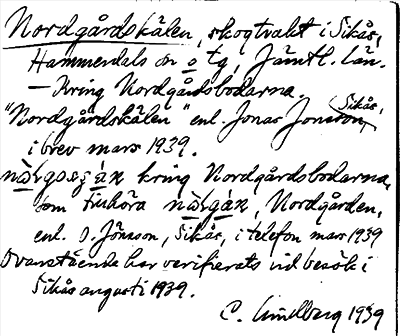 Nordgårdskälen, skogtrakt i Sikås,
Hammerdals sn o tg, Jämtl. län.
— Kring Nordgårdsbodarna.
"Nordgårdskälen" enl. Jonas Jonsson, Sikås,
i brev mars 1939.
kring Nordgårdsbodarna,
som tillhöra nàl̀gán, Nordgården,
enl. J. Jönsson, Sikås, i telefon mars 1939
Ovanstående har verifierats vid besök i
Sikås augusti 1939.
C. Lindberg 1939